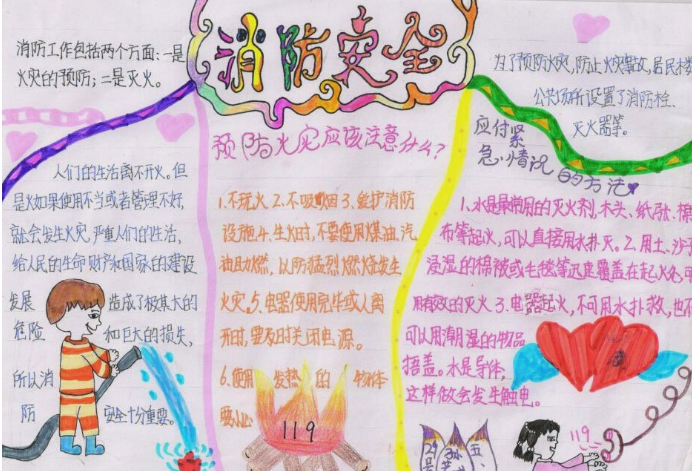 消防安全
消防工作包括两个方面:一是
火灾的预防;二是灭火。
人们的生活离不开火。但
是火如果使用不当或者管理不好,
就会发生火灾,严重人们的生活,
给人民的生命财产和国家的建设
发展 造成了极其大的
危险 和巨大的损失,
所以消
防 安全十分重要。
预防火灾应该注意什么?
1.不玩火 2.不吸烟 3.爱护消防
设施 4.生火时,不要使用煤油、汽
油助燃,以防猛烈燃烧发生
火灾。5.电器使用完毕或人离
开时,要及时关闭电源。
6.使用 发热 的 物体
要小心
119
为了预防火灾,防止火灾事故,居民楼
公共场所设置了消防栓、
灭火器等。
应付紧
急情况的方法
1.水是最常用的灭火剂,木头、纸张、棉
布等起火,可以直接用水扑灭。2.用土、沙子
浸湿的棉被或毛毯等迅速覆盖在起火处,可
用有效的灭火 3.电器起火,不可用水扑救,也不
可以用潮湿的物品
捂盖。水是导体,
这样做会发生触电。
119